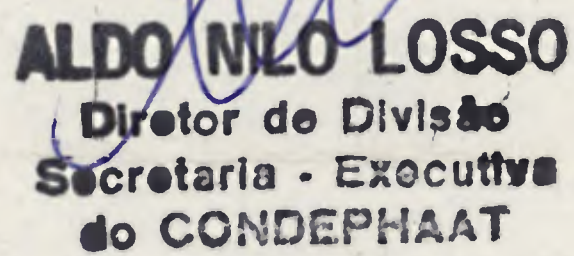 ALDO NILO LOSSO
Diretor de Divisão
Secretaria - Executiva
do CONDEPHAAT